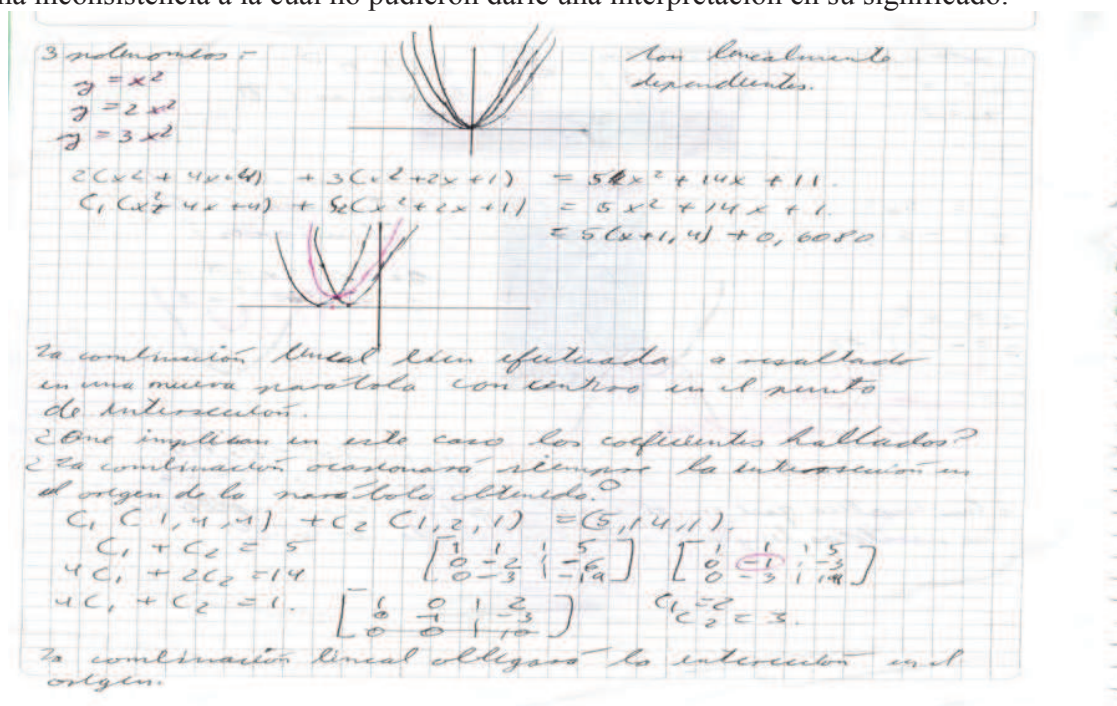 na inconsistencia a la cual no pudieron darle una interpretación en su significado.
3 polinomios =
Son linealmente
dependientes.
y = x²
y = 2x²
y = 3x²
2(x² + 4x+4) + 3(x²+2x+1) = 5x² + 14x + 11.
C₁(x² 4x+4) + C₂(x²+2x+1) = 5x² + 14x + 1.
= 5(x+1,4) + 0,6080
La combinación lineal bien efectuada a resultado
en una nueva parábola con centro en el punto
de intersección.
¿Que implican en este caso los coeficientes hallados?
¿La combinación ocasionará siempre la intersección en
el origen de la parábola obtenida?
C₁(1,4,4) + C₂(1,2,1) = (5,14,1).
C₁ + C₂ = 5
4C₁ + 2C₂ = 14
4C₁ + C₂ = 1.
[1 1 | 5
0 -2 | -6
0 -3 | -19]
[1 1 | 5
0 -1 | -3
0 -3 | 19]
[1 0 | 2
0 -1 | -3
0 0 | 10]
C₁ = 2
C₂ = 3.
La combinación lineal obligará la intersección en el
origen.